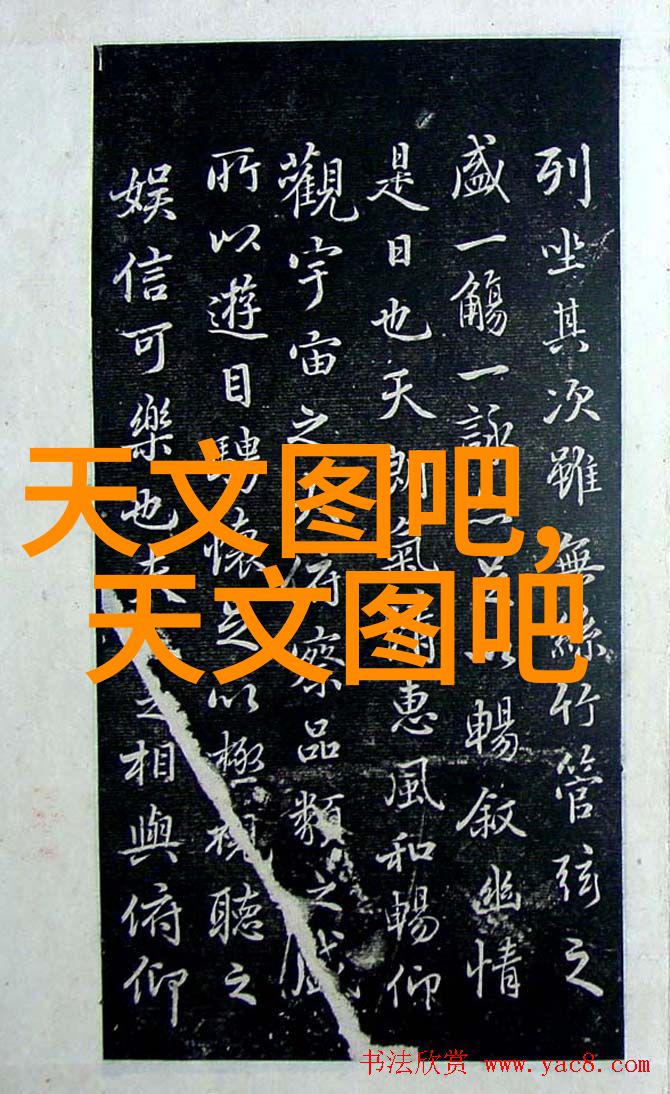 列坐其次雖無絲竹管弦之
盛一觴一詠以暢敘幽情
是日也天朗氣清惠風和暢仰
觀宇宙之俯察品類之盛
所以遊目騁懷足以極視聽之
娛信可樂也夫之相與俯仰
天文图吧,
天文图吧
书法欣赏 www.yac8.com